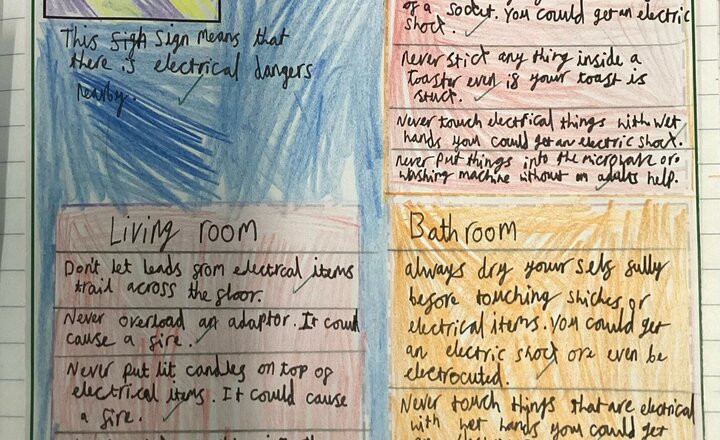 This sigh sign means that
there is electrical dangers
nearby.
of a socket. You could get an electric
shock.
Never stick any thing inside a
toaster even if your toast is
stuck.
Never touch electrical things with wet
hands you could get an electric shock.
never put things into the microwave or
washing machine without an adults help.
Living room
Don't let leads from electrcal items
trail across the floor.
Never overload an adaptor. It could
cause a fire.
Never put lit candles on top of
electrical items. It could cause
a fire.
Bathroom
always dry your self fully
before touching
or
electrical items. You could get
an electric shock ore even be
electrocuted.
Never touch things that are electrical
with wet hands you could get